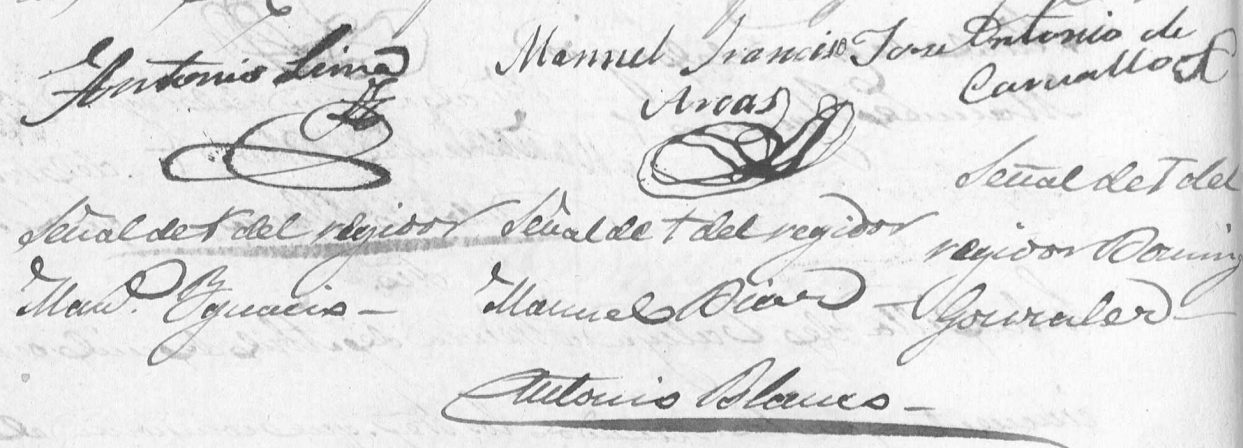 Antonio Lima
Manuel Francisco
Arcas
Jose Antonio de
Carvallo
Señal de † del regidor
Man.l Ygnacio -
Señal de † del regidor
Manuel Diard -
Señal de † del
regidor Doming
Gonzalez -
Antonio Blanco -